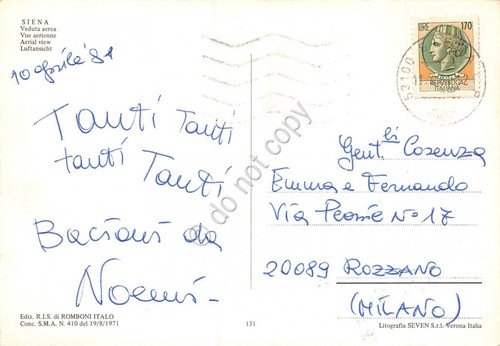 SIENA
Veduta aerea
Vue aerienne
Aerial view
Luftansicht
10 aprile '81
Tanti Tanti
tanti Tanti
Bacioni da
Noemi-
LIRE 170
REPUBBLICA
ITALIANA
53100
Gent.li Cosenza
Emma e Fernando
Via N° 17
20089 ROZZANO
(MILANO)
do not copy
Ediz. R.I.S. di ROMBONI ITALO
Conc. S.M.A. N. 410 del 19/8/1971
131
Litografia SEVEN S.r.l. Verona Italia